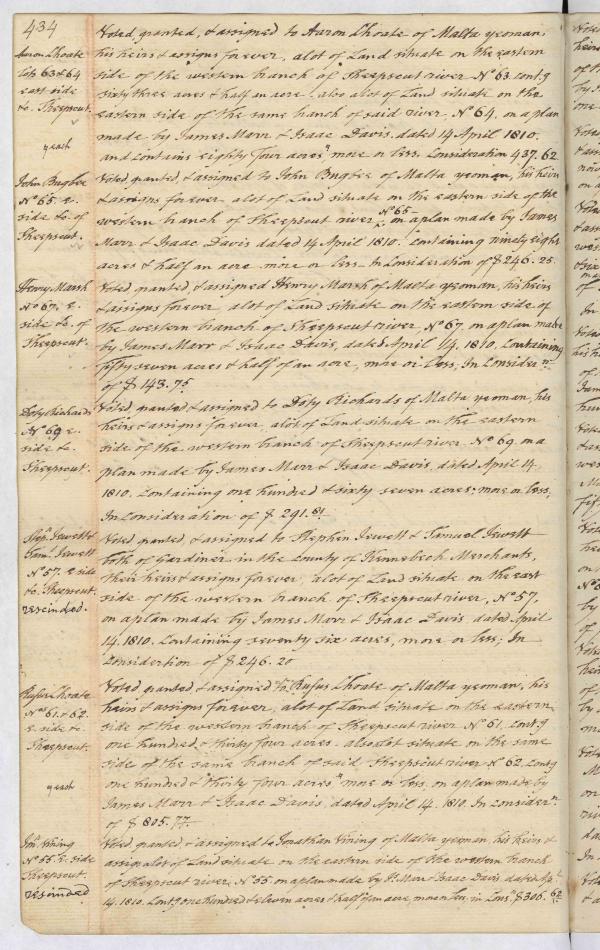 434
Aaron Choate
lots 63 & 64
east side
&c. Sheepscut.
yeast
Voted, granted, & assigned to Aaron Choate of Malta yeoman,
his heirs & assigns forever, a lot of Land situate on the eastern
side of the western branch of Sheepscut river No 63. contg
sixty three acres & half an acre, also a lot of Land situate on the
eastern side of the same branch of said river, No 64. on a plan
made by James Marr & Isaac Davis, dated 14 April 1810.
and contains eighty four acres, more or less. Consideration 437.62
John Bugbee
No 65 E.
side &c of
Sheepscut.
Voted, granted, & assigned to John Bugbee of Malta yeoman, his heirs
& assigns forever, a lot of Land situate on the eastern side of the
western branch of Sheepscut river, No 65 on a plan made by James
Marr & Isaac Davis dated 14 April 1810. Containing ninety eight
acres & half an acre more or less. In Consideration of $246.25.
Henry Marsh
No 67, E.
side &c. of
Sheepscut.
Voted, granted & assigned Henry Marsh of Malta yeoman, his heirs
& assigns forever, a lot of Land situate on the eastern side of
the western branch of Sheepscut river, No 67. on a plan made
by James Marr & Isaac Davis, dated April 14, 1810. Containing
fifty seven acres & half of an acre, more or less, In Considern
of $143.75
Doty Richards
No 69 E.
side &c.
Sheepscut.
Voted, granted & assigned to Doty Richards of Malta yeoman, his
heirs & assigns forever, a lot of Land situate on the eastern
side of the western branch of Sheepscut river No 69. on a
plan made by James Marr & Isaac Davis, dated April 14.
1810. Containing one hundred & sixty seven acres, more or less,
In Consideration of $291.81
Stepn Jewett &
Saml Jewett
No 57. E side
&c. Sheepscut.
rescinded.
Voted, granted & assigned to Stephen Jewett & Samuel Jewett
both of Gardiner in the County of Kennebeck Merchants,
their heirs & assigns forever, a lot of Land situate on the east
side of the western branch of Sheepscut river, No 57,
on a plan made by James Marr & Isaac Davis, dated April
14. 1810. Containing seventy six acres, more or less; In
Considertion of $246.20
Rufus Choate
Nos 61. & 62.
E. side &c.
Sheepscut.
yeast
Voted, granted & assigned to Rufus Choate of Malta yeoman, his
heirs & assigns forever, a lot of Land situate on the eastern
side of the western branch of Sheepscut river No 61. contg
one hundred & thirty four acres. also a lot situate on the same
side of the same branch of said Sheepscut river No 62. contg
one hundred & thirty four acres more or less. on a plan made by
James Marr & Isaac Davis, dated April 14. 1810. In considern
of $805.77
Jona Vining
No 55. E. side
Sheepscut.
rescinded
Voted, granted, & assigned to Jonathan Vining of Malta yeoman, his heirs &
assigns a lot of Land situate on the eastern side of the western branch
of Sheepscut river, No 55. on a plan made by Js. Marr & Isaac Davis, dated Apl
14. 1810. Contg one hundred & eleven acres & half of an acre, more or less, in Consn $306.62